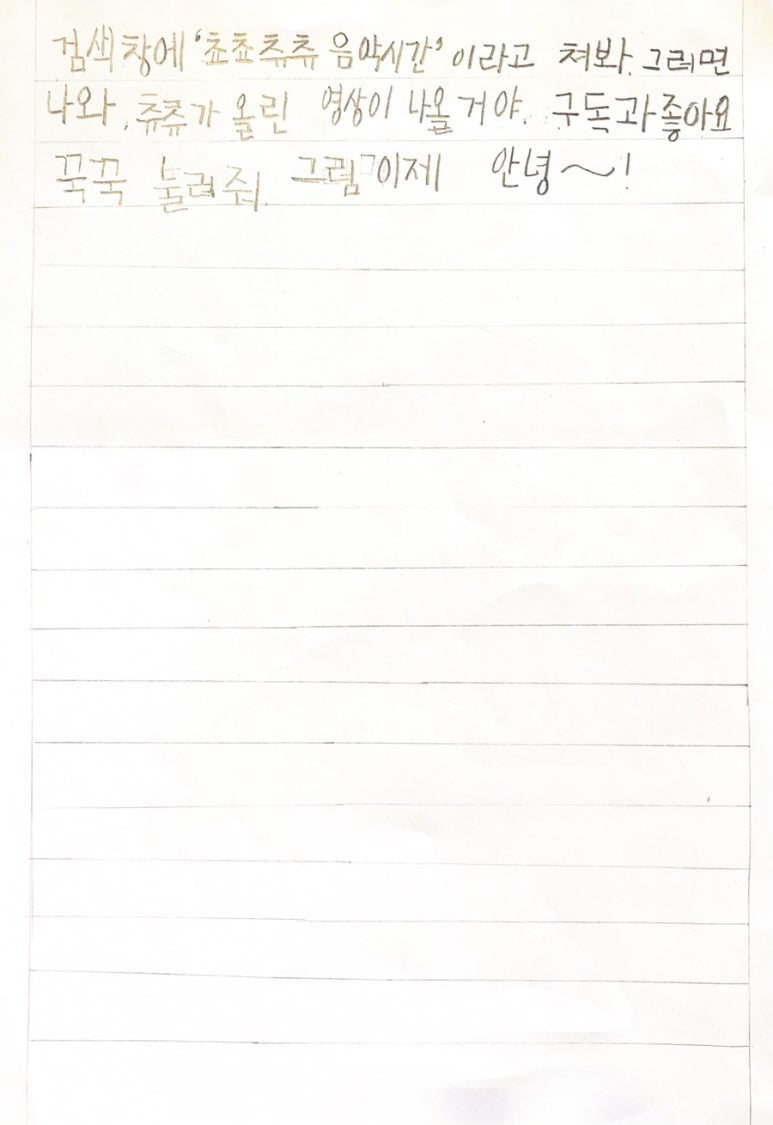 검색창에 '쵸쵸츄츄 음악시간' 이라고 쳐봐. 그러면
나와, 츄츄가 올린 영상이 나올 거야. 구독과좋아요
꾹꾹 눌러줘. 그럼 이제 안녕~!